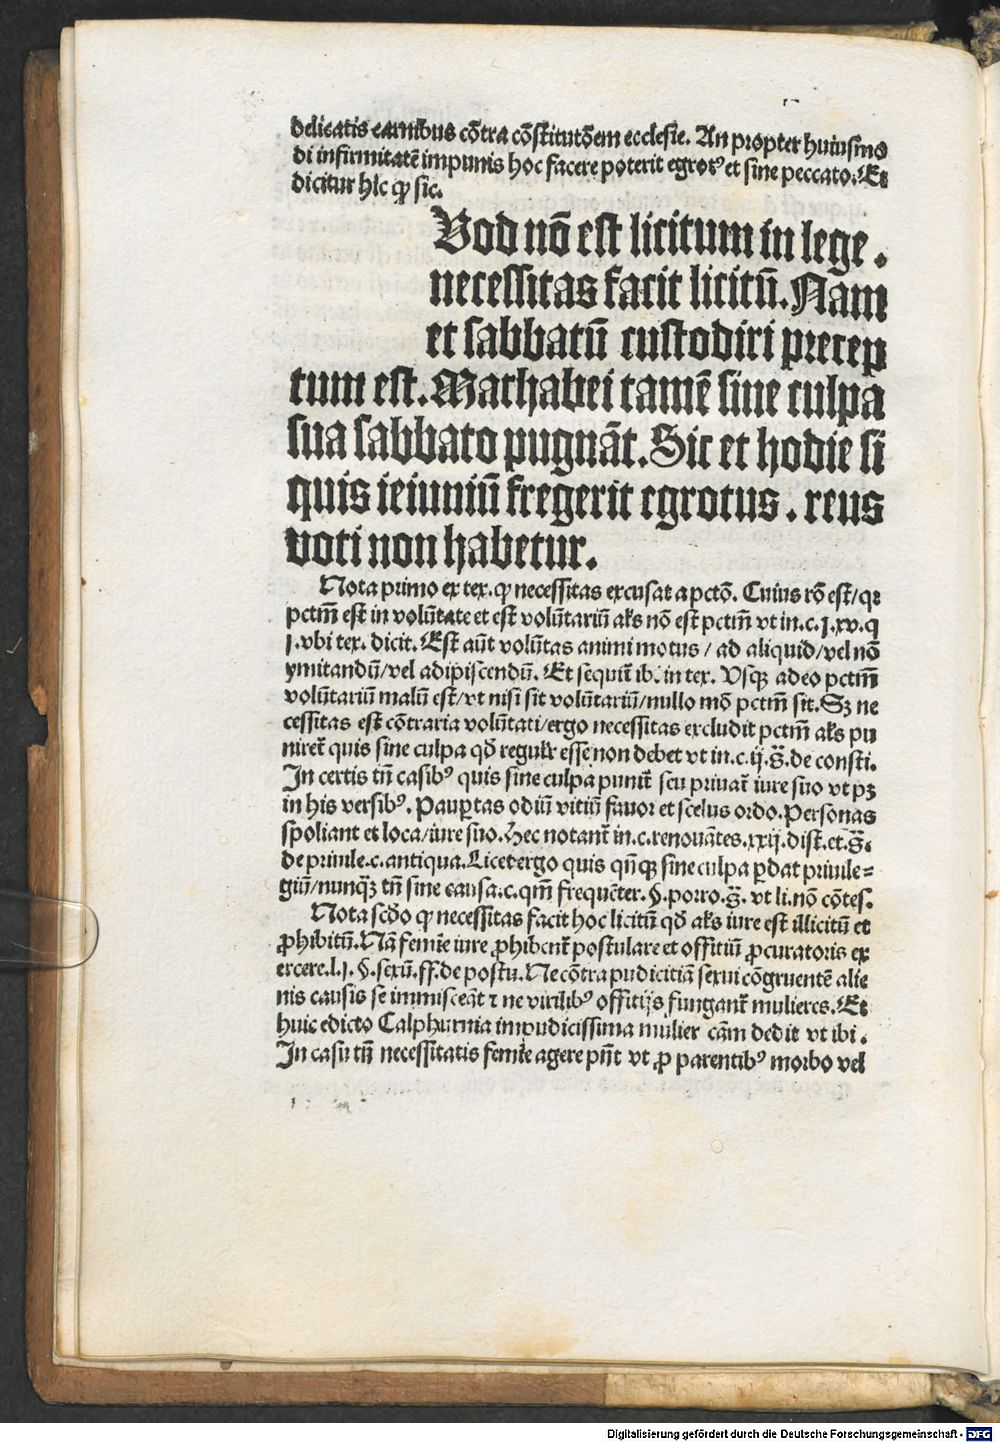 delicatis carnibus cōtra cōstitutōem ecclesie. An propter huiusmo
di infirmitatē impunis hoc facere poterit egrotꝰ et sine peccato. Et
dicitur hic ꝙ sic.
Uod nō est licitum in lege.
necessitas facit licitū. Nam
et sabbatū custodiri precep
tum est. Machabei tamē sine culpa
sua sabbato pugnāt. Sic et hodie si
quis ieiuniū fregerit egrotus. reus
voti non habetur.
Nota primo ex tex. ꝙ necessitas excusat a pctō. Cuius rō est/qꝛ
pctm̄ est in volūtate et est volūtariū als nō est pctm̄ vt in.c.j.xv.q
j.vbi tex. dicit. Est aūt volūtas animi motus/ad aliquid/vel nō
ymitandū/vel adipiscendū. Et sequit᷑ ib. in tex. Vsqꝫ adeo pctm̄
volūtariū malū est/vt nisi sit volūtariū/nullo mō pctm̄ sit. Sꝫ ne
cessitas est cōtraria volūtati/ergo necessitas excludit pctm̄ als pu
niret᷑ quis sine culpa qđ regulr̄ esse non debet vt in.c.ij.g̅.de consti.
In certis tn̄ casibꝰ quis sine culpa punit᷑ seu priuat᷑ iure suo vt pꝫ
in his versibꝰ. Paup̱tas odiū vitiū fauor et scelus ordo. Personas
spoliant et loca/iure suo. Hec notant᷑ in.c.renouātes.xxij.dist.et.g̅.
de priuile.c.antiqua. Licet ergo quis qn̄qꝫ sine culpa p̱dat priuile=
giū/nunqꝫ̄ tn̄ sine causa.c.qm̄ frequēter.§.porro.g̅. vt li.nō cōtes.
Nota scđo ꝙ necessitas facit hoc licitū qđ als iure est illicitū et
ꝓhibitū. Nā femīe iure ꝓhibent᷑ postulare et offitiū ꝓcuratoris ex
ercere.l.j.§.sexū.ff.de postu. Ne cōtra pudicitiā sexui cōgruentē alie
nis causis se immisceāt ⁊ ne virilibꝰ offitijs fungant᷑ mulieres. Et
huic edicto Calphurnia impudicissima mulier cām dedit vt ibi.
In casu tn̄ necessitatis femīe agere pn̄t vt ꝓ parentibꝰ morbo vel
Digitalisierung gefördert durch die Deutsche Forschungsgemeinschaft - DFG